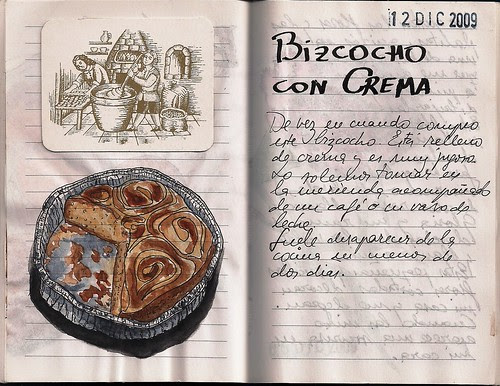 12 DIC 2009
BIZCOCHO
CON CREMA
De vez en cuando compro
este bizcocho. Está relleno
de crema y es muy jugoso.
Lo solemos tomar en
la merienda acompañado
de un café o un vaso de
leche.
Suele desaparecer de la
cocina en menos de
dos días.